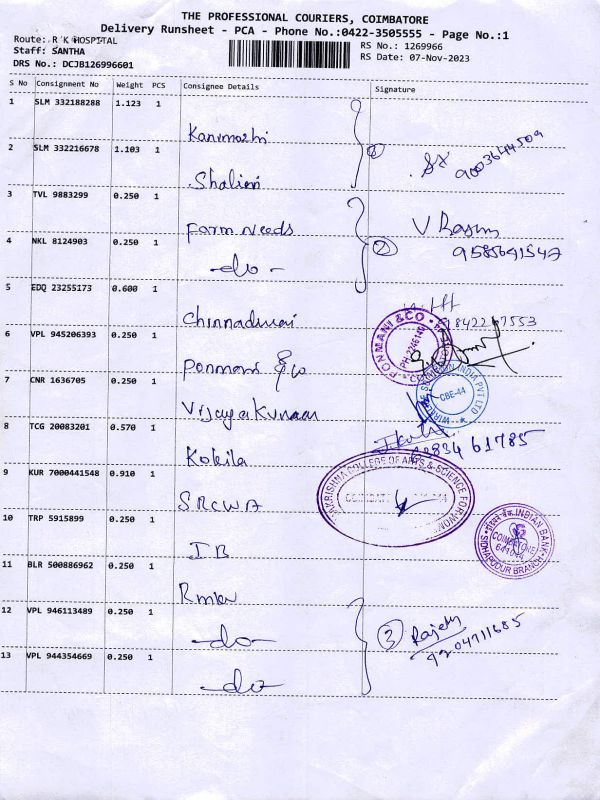 THE PROFESSIONAL COURIERS, COIMBATORE
Delivery Runsheet - PCA - Phone No.:0422-3505555 - Page No.:1
Route: R K HOSPITAL
Staff: SANTHA
DRS No.: DCJB126996601
RS No.: 1269966
RS Date: 07-Nov-2023
S No Consignment No Weight PCS Consignee Details Signature
1 SLM 332188288 1.123 1
Kanimozhi
2 SLM 332216678 1.103 1
①
9003644509
Shalini
3 TVL 9883299 0.250 1
Farm Needs
V
4 NKL 8124903 0.250 1
②
9585691547
-do-
5 EDQ 23255173 0.600 1
Chinnadurai
PONMANI & CO
6 VPL 945206393 0.250 1
Ponmani & Co
7 CNR 1636705 0.250 1
CBE-44
INDIA PVT LTD
Vijayakumar
8 TCG 20083201 0.570 1
Kokila
61785
9 KUR 7000441548 0.910 1
KRISHNA COLLEGE OF ARTS & SCIENCE FOR WOM
SRCWA
10 TRP 5915899 0.250 1
INDIAN BANK
COIMBATORE
BRANCH
IB
11 BLR 500886962 0.250 1
12 VPL 946113489 0.250 1
-do-
③
13 VPL 944354669 0.250 1
-do-